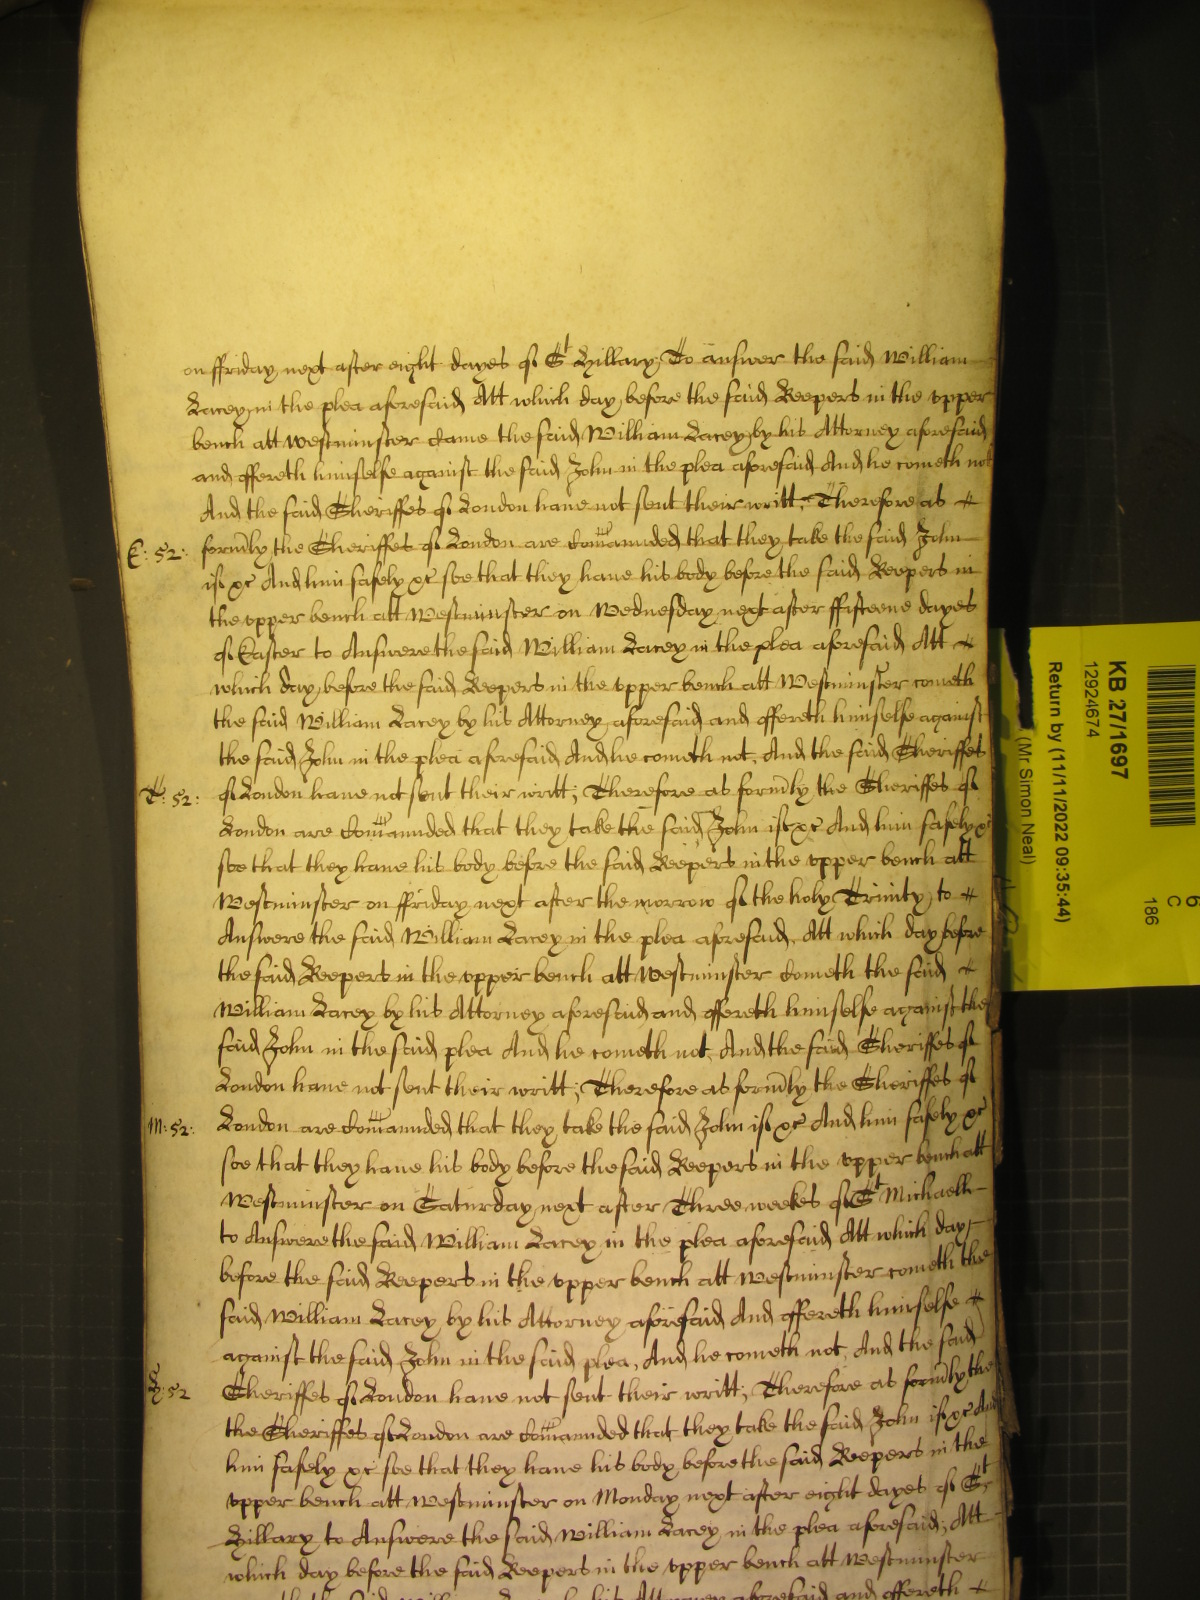 on ffriday next after eight dayes of St Hillary, To answer the said William
Lacey in the plea aforesaid Att which day before the said Keepers in the vpper
bench att Westminster Came the said William Lacey by his Attorney aforesaid
and offereth himselfe against the said John in the plea aforesaid And he cometh not
And the said Sheriffes of London haue not sent their writt; Therefore as
E: 52: form̄ly the Sheriffes of London are Com̄anded that they take the said John
if &c And him safely &c soe that they haue his body before the said Keepers in
the vpper bench att Westminster on Wednesday next after ffifteene dayes
of Easter to Answere the said William Lacey in the plea aforesaid Att
which day before the said Keepers in the vpper bench att Westminster cometh
the said William Lacey by his Attorney aforesaid and offereth himselfe against
the said John in the plea aforesaid And he cometh not, And the said Sheriffes
T: 52: of London haue not sent their writt; Therefore as form̄ly the Sheriffes of
London are Com̄anded that they take the said John if &c And him safely &c
soe that they haue his body before the said Keepers in the vpper bench att
Westminster on ffriday next after the morrow of the holy Trinity to
Answere the said William Lacey in the plea aforesaid, Att which day before
the said Keepers in the vpper bench att Westminster Cometh the said
William Lacey by his Attorney aforesaid and offereth himselfe against the
said John in the said plea And he cometh not, And the said Sheriffes of
London haue not sent their writt; Therefore as form̄ly the Sheriffes of
M: 52: London are Com̄anded that they take the said John if &c And him safely &c
soe that they haue his body before the said Keepers in the vpper bench att
Westminster on Saturday next after Three weekes of St Michaell
to Answere the said William Lacey in the plea aforesaid Att which day
before the said Keepers in the vpper bench att Westminster cometh the
said William Lacey by his Attorney aforesaid And offereth himselfe
against the said John in the said plea, And he cometh not, And the said
H: 52 Sheriffes of London haue not sent their writt; Therefore as form̄ly the
the Sheriffes of London are Com̄anded that they take the said John if &c And
him safely &c soe that they haue his body before the said Keepers in the
vpper bench att Westminster on Monday next after eight dayes of St
Hillary to Answere the said William Lacey in the plea aforesaid; Att
which day before the said Keepers in the vpper bench att Westminster
the said William Lacey by his Attorney aforesaid and offereth
KB 27/1697
12924674
Return by (11/11/2022 09:35:44)
(Mr Simon Neal)
6
C
186